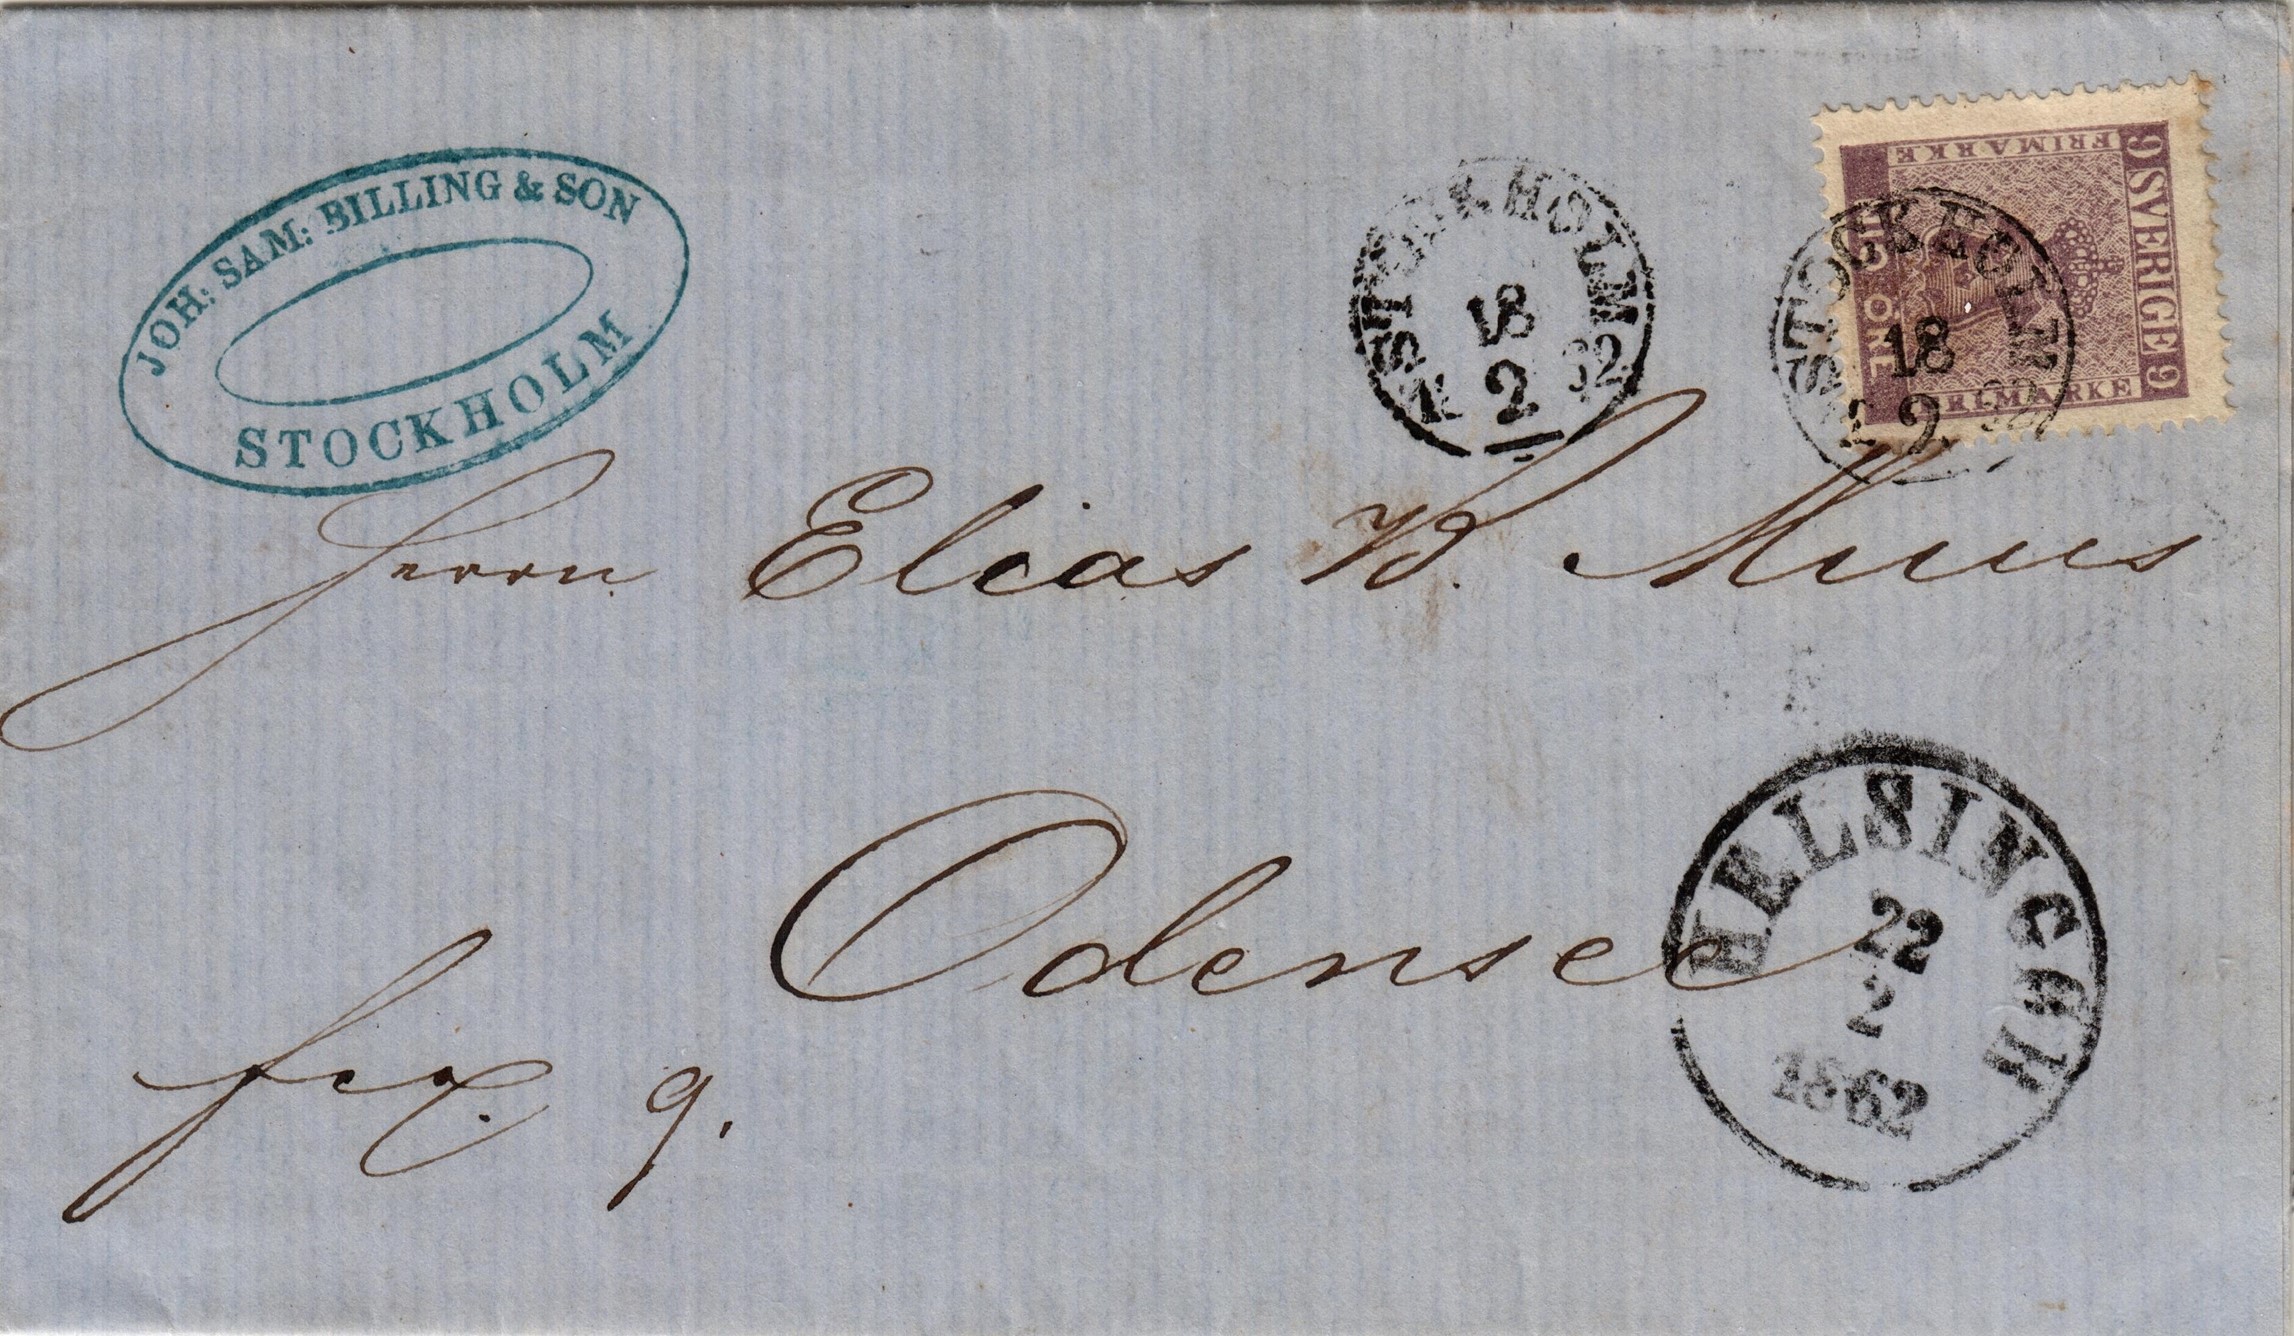 JOH: SAM: BILLING & SON
STOCKHOLM
STOCKHOLM
18
2
62
9 SVERIGE 9
FRIMÄRKE
FRIMÄRKE
NIO ÖRE
STOCKHOLM
18
2
62
Herrn Elias B. Muus
Odense
fco. 9.
HELSINGÖR
22
2
1862